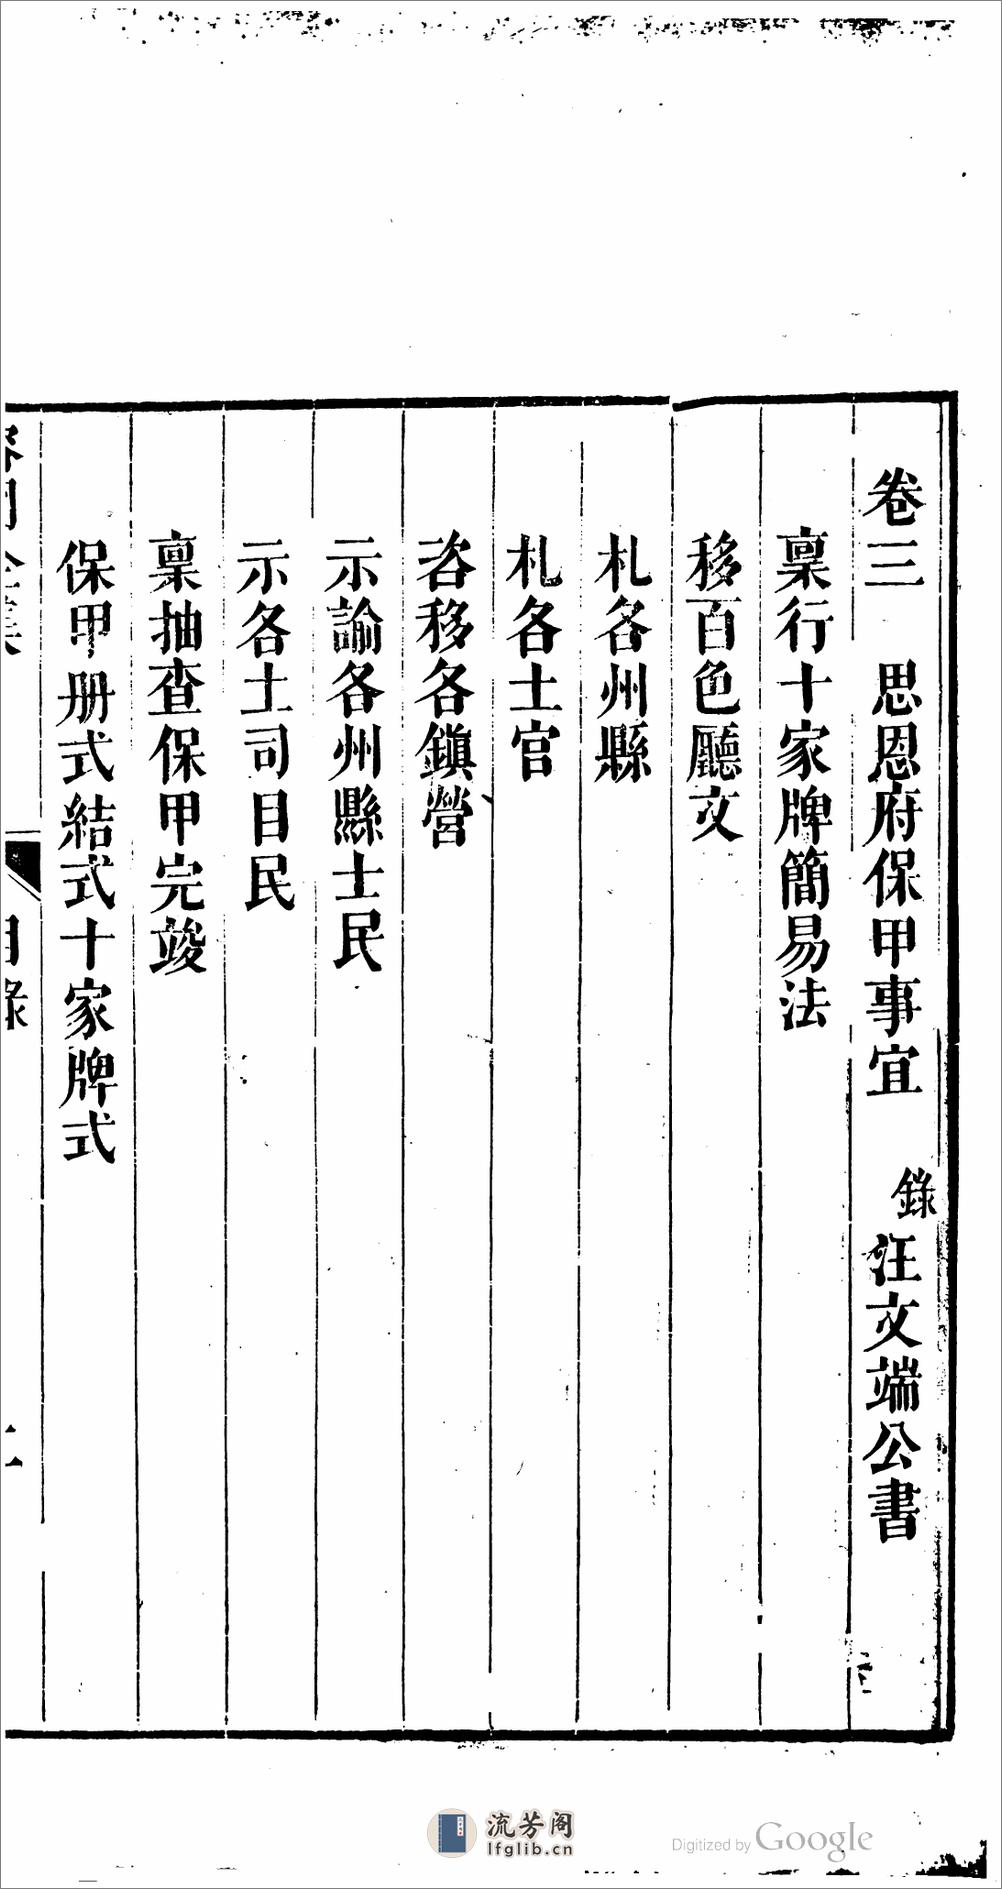 卷三　思恩府保甲事宜　錄汪文端公書
稟行十家牌簡易法
移百色廳文
札各州縣
札各土官
咨移各鎮營
示諭各州縣士民
示各土司目民
稟抽查保甲完竣
保甲册式結式十家牌式
目錄
流芳阁
lfglib.cn
Digitized by Google